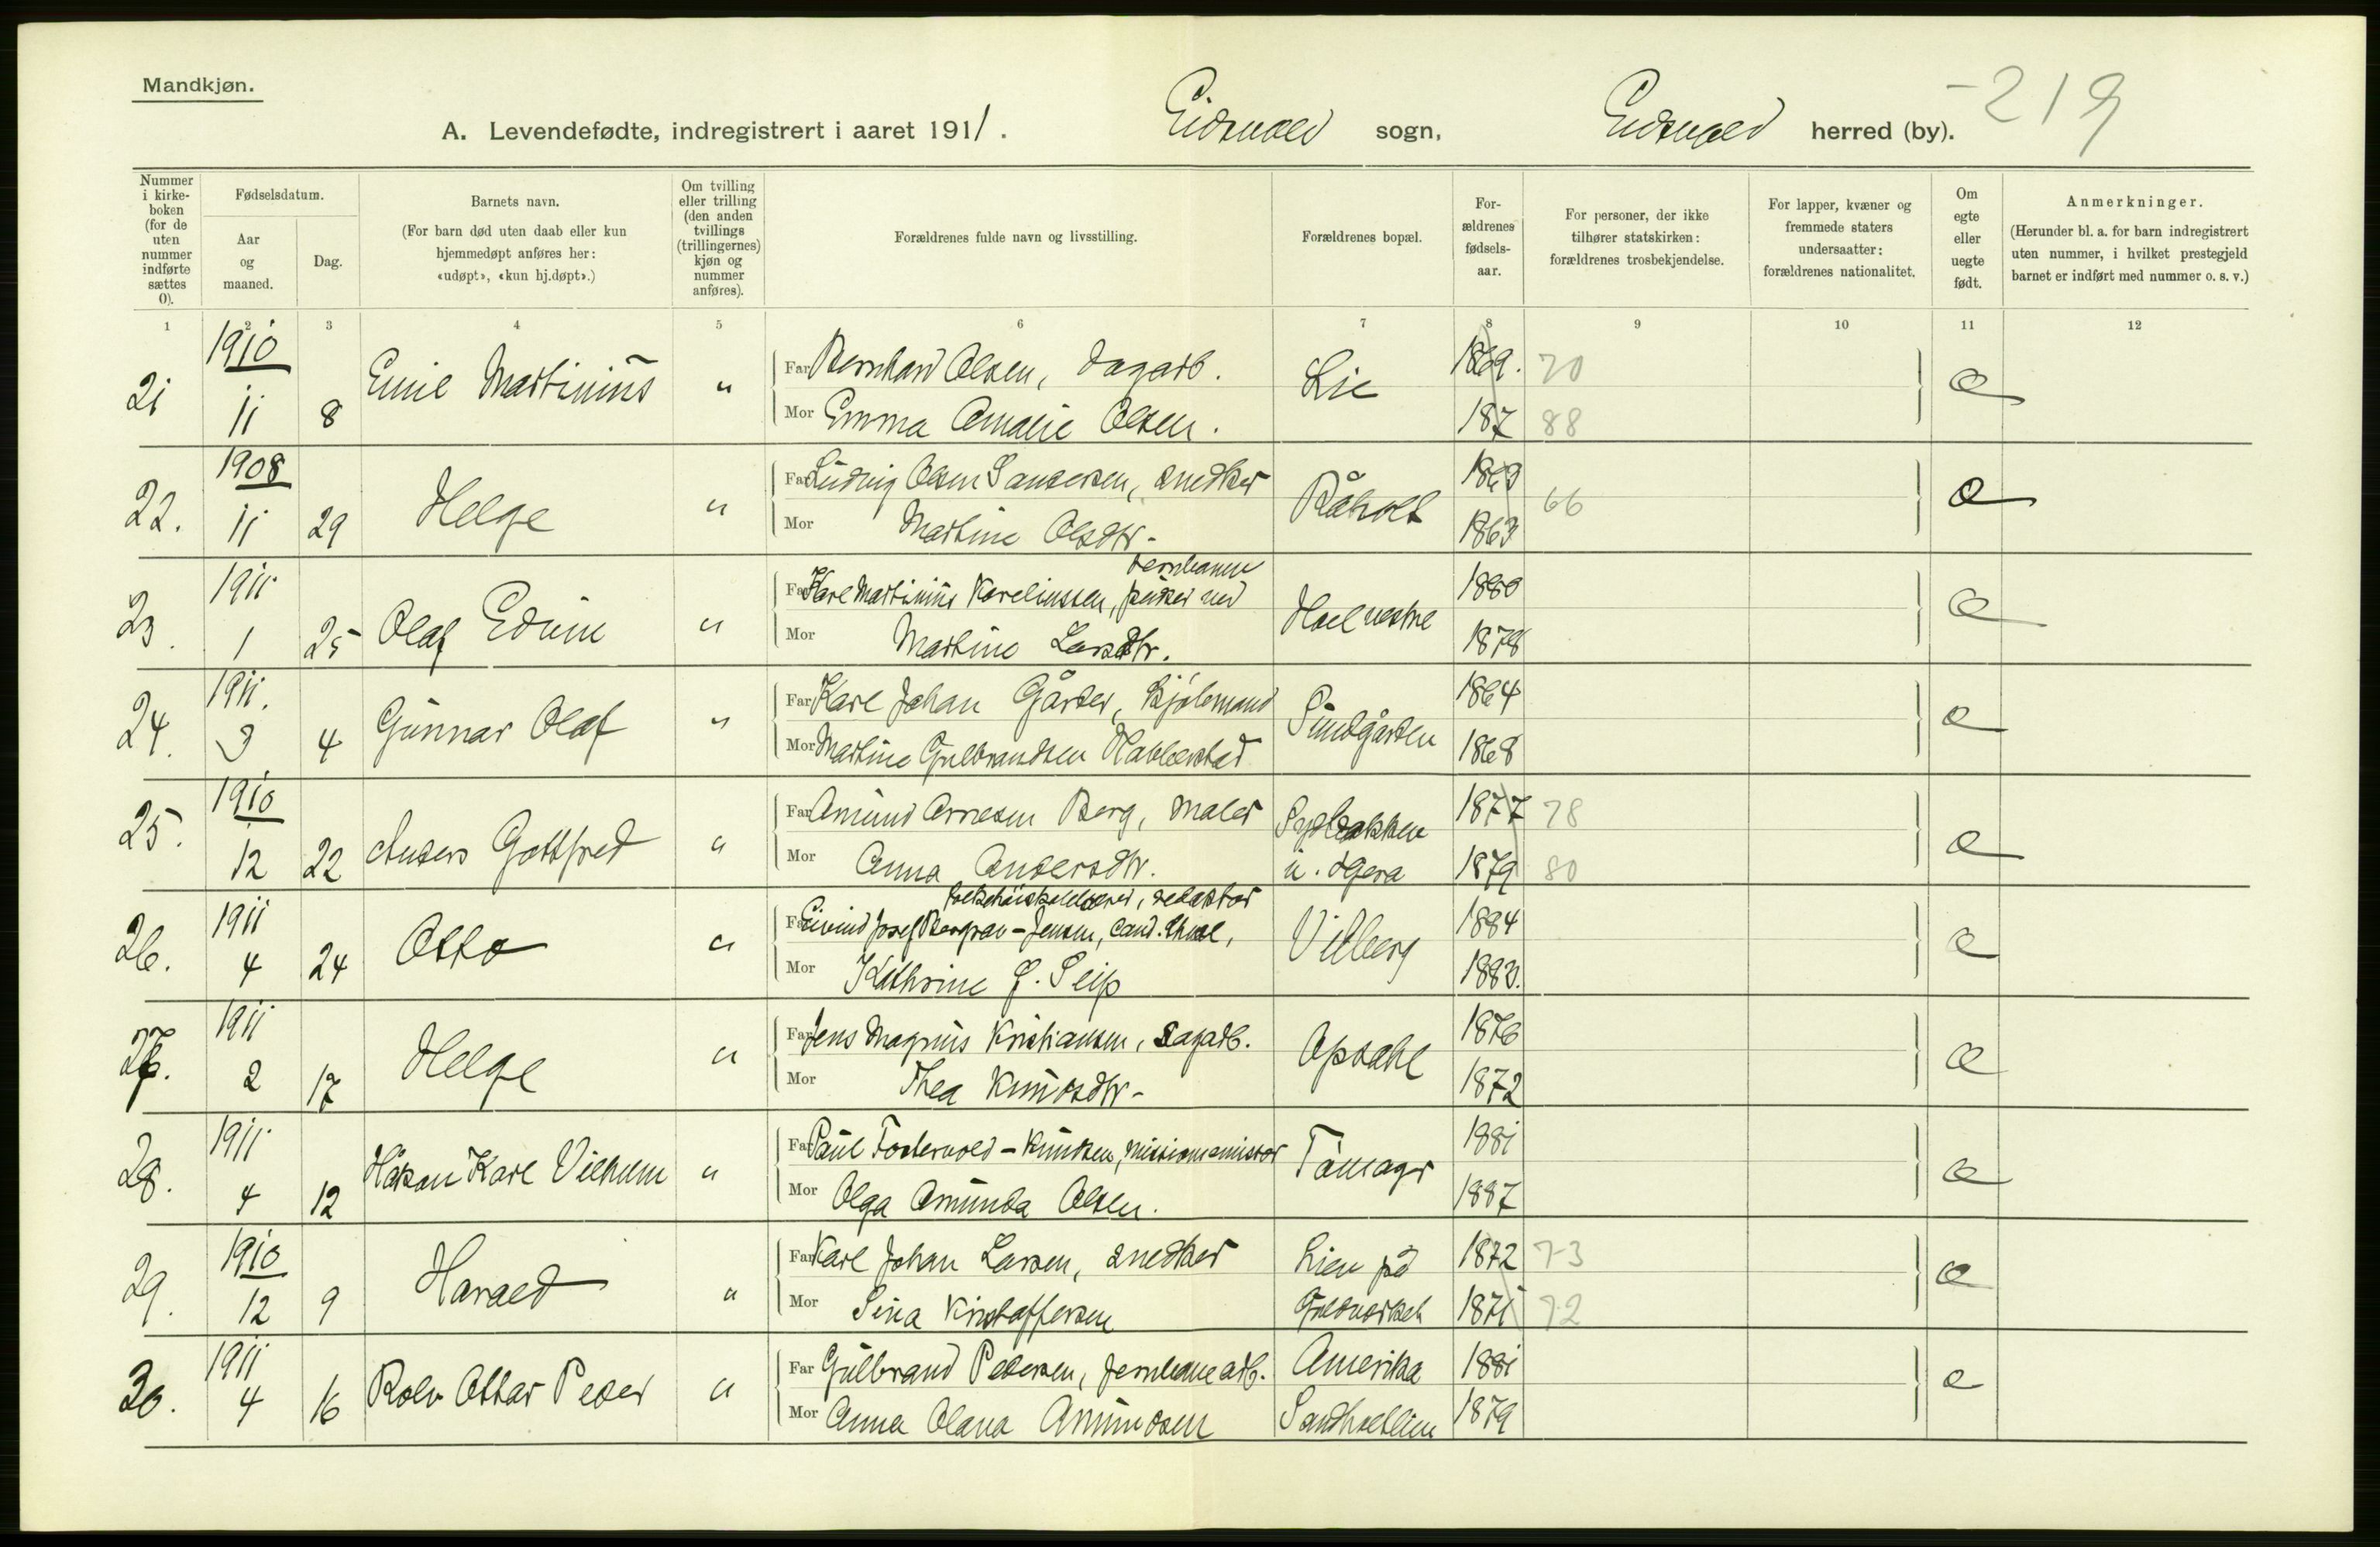 Mandkjøn.
A. Levendefødte, indregistrert i aaret 1911. Eidsvold sogn, Eidsvold herred (by). -219
Nummer i kirke-boken (for de uten nummer indførte sættes 0).
Fødselsdatum.
Aar og maaned.
Dag.
Barnets navn.
(For barn død uten daab eller kun hjemmedøpt anføres her: «udøpt», «kun hj.døpt».)
Om tvilling eller trilling (den anden tvillings (trillingernes) kjøn og nummer anføres).
Forældrenes fulde navn og livsstilling.
Forældrenes bopæl.
For-ældrenes fødsels-aar.
For personer, der ikke tilhører statskirken: forældrenes trosbekjendelse.
For lapper, kvæner og fremmede staters undersaatter: forældrenes nationalitet.
Om egte eller uegte født.
Anmerkninger.
(Herunder bl. a. for barn indregistrert uten nummer, i hvilket prestegjeld barnet er indført med nummer o. s. v.)
1 2 3 4 5 6 7 8 9 10 11 12
1910
21 11 8 Emil Martinius " Far Bernhard Olsen, dagarb. Lie 1869. 70 e
Mor Emma Amalie Olsen. 187 88
1908
22. 11 29 Helge " Far Ludvig Olsen Sandersen, snedker Råholt 1863 66 e
Mor Martine Olsdtr. 1863
1911
23. 1 25 Olaf Edvin " Far Karl Martinius Karelinssen, pudser ved jernbanen Hoel vestre 1880 e
Mor Martine Larsdtr. 1878
1911.
24. 3 4 Gunnar Olaf " Far Karl Johan Gården, Hjólmand Sundgården 1864 e
Mor Martine Gulbrandsen Habberstad 1868
1910
25. 12 22 Anders Gottfred " Far Amund Arnesen Berg, maler 1877 78 e
Mor Anna Andersdtr. u. Ågera 1879 80
1911
26. 4 24 Otto " Far Eivind Josef Berggrav-Jensen, Cand. theol, folkehöiskolelærer, redaktør Vilberg 1884 e
Mor Kathrine G. Seip 1883.
1911
27. 2 17 Helge " Far Jens Magnus Kristiansen, dagarb. Opsahl 1876 e
Mor Thea Knudsdtr. 1872
1911
28. 4 12 Håkon Karl Vilhelm " Far Paul Fostervold-Knudsen, missionsemissær Tåmagr 1881 e
Mor Olga Amunda Olsen. 1887
1910
29. 12 9 Harald " Far Karl Johan Larsen, snedker Lien på 1872 73 e
Mor Sina Kristoffersen Guldverket 1871 72
1911
30. 4 16 Rolv Ottar Peder " Far Gulbrand Pedersen, jernbanearb. Amerika 1881 e
Mor Anna Olava Amundsen Sandholtlien 1879